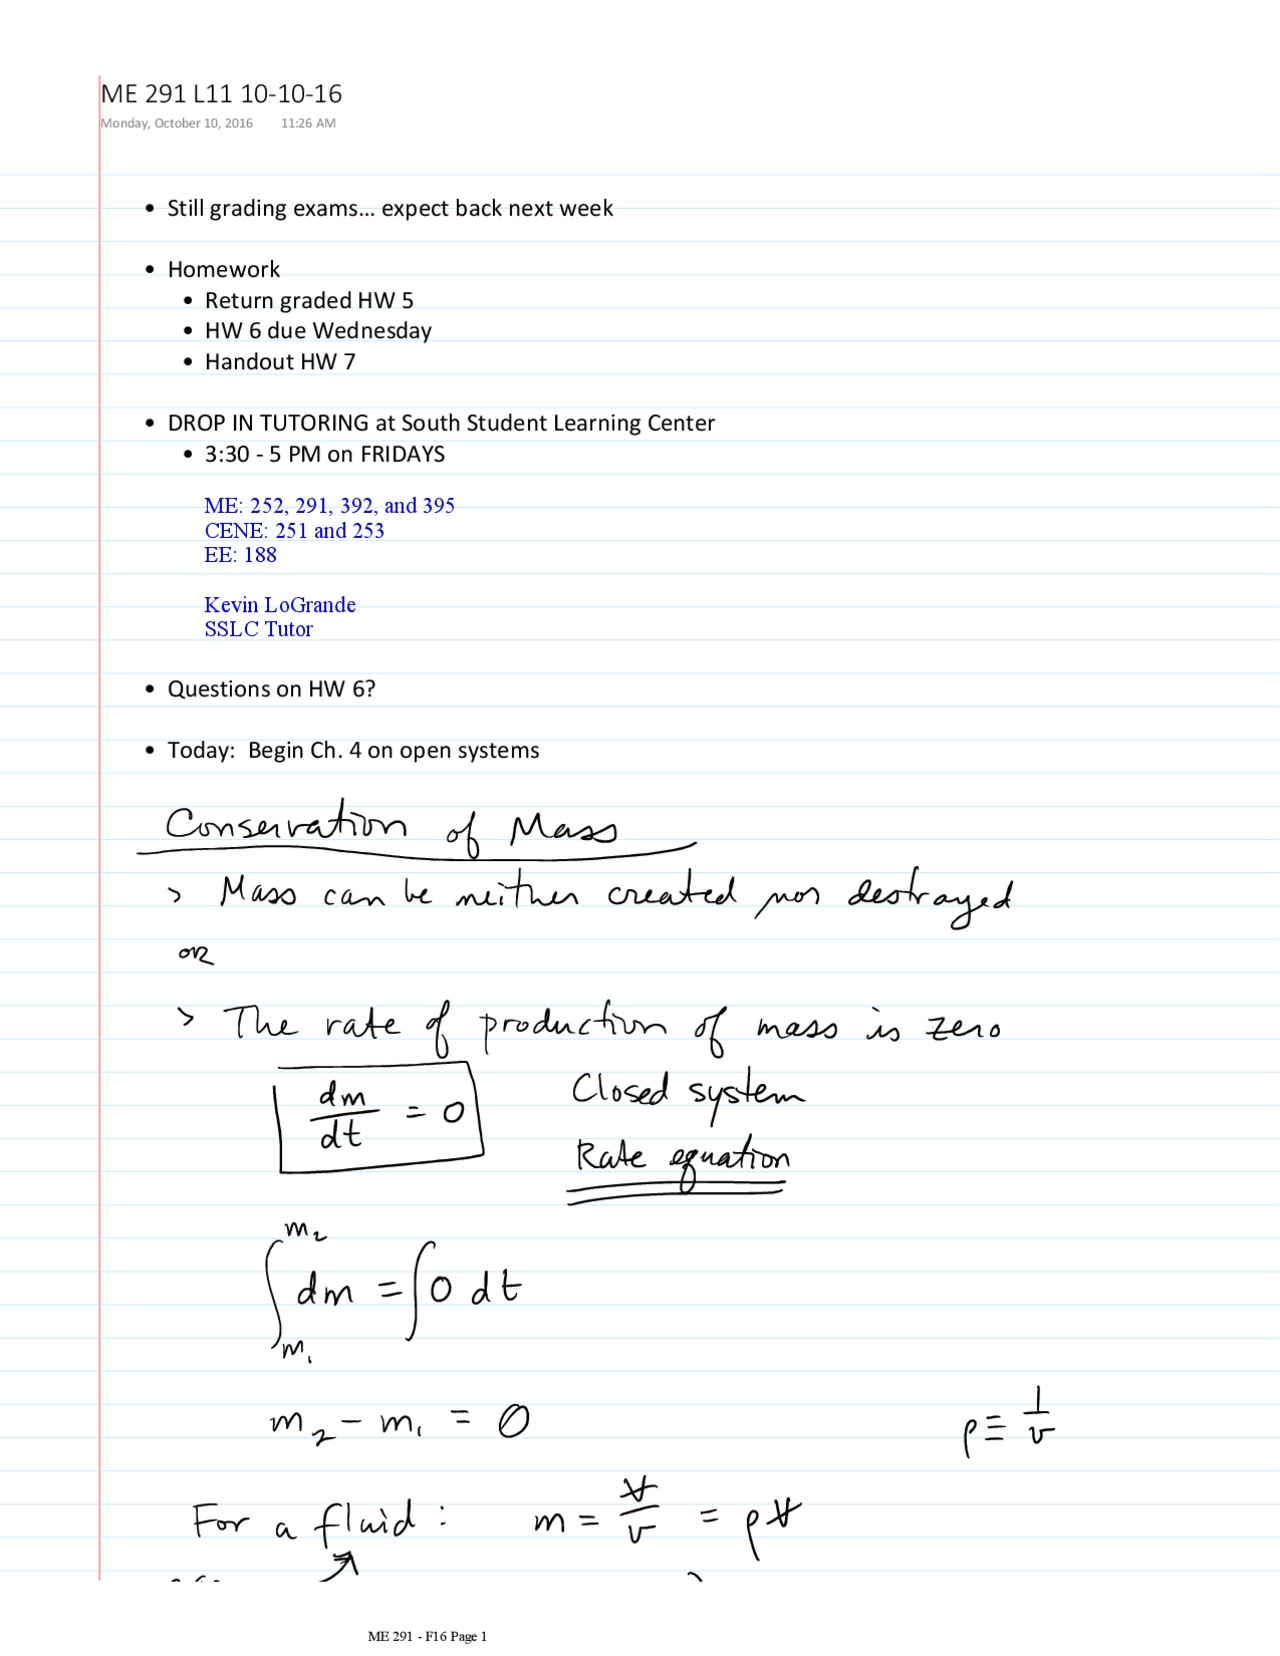 ME 291 L11 10-10-16
Monday, October 10, 2016 11:26 AM
• Still grading exams... expect back next week
• Homework
• Return graded HW 5
• HW 6 due Wednesday
• Handout HW 7
• DROP IN TUTORING at South Student Learning Center
• 3:30 - 5 PM on FRIDAYS
ME: 252, 291, 392, and 395
CENE: 251 and 253
EE: 188
Kevin LoGrande
SSLC Tutor
• Questions on HW 6?
• Today: Begin Ch. 4 on open systems
Conservation of Mass
> Mass can be neither created nor destroyed
OR
> The rate of production of mass is zero
dm/dt = 0 Closed system
Rate equation
∫_{m₁}^{m₂} dm = ∫ 0 dt
m₂ - m₁ = 0 ρ ≡ 1/v
For a fluid: m = V̶/v = ρV̶
ME 291 - F16 Page 1